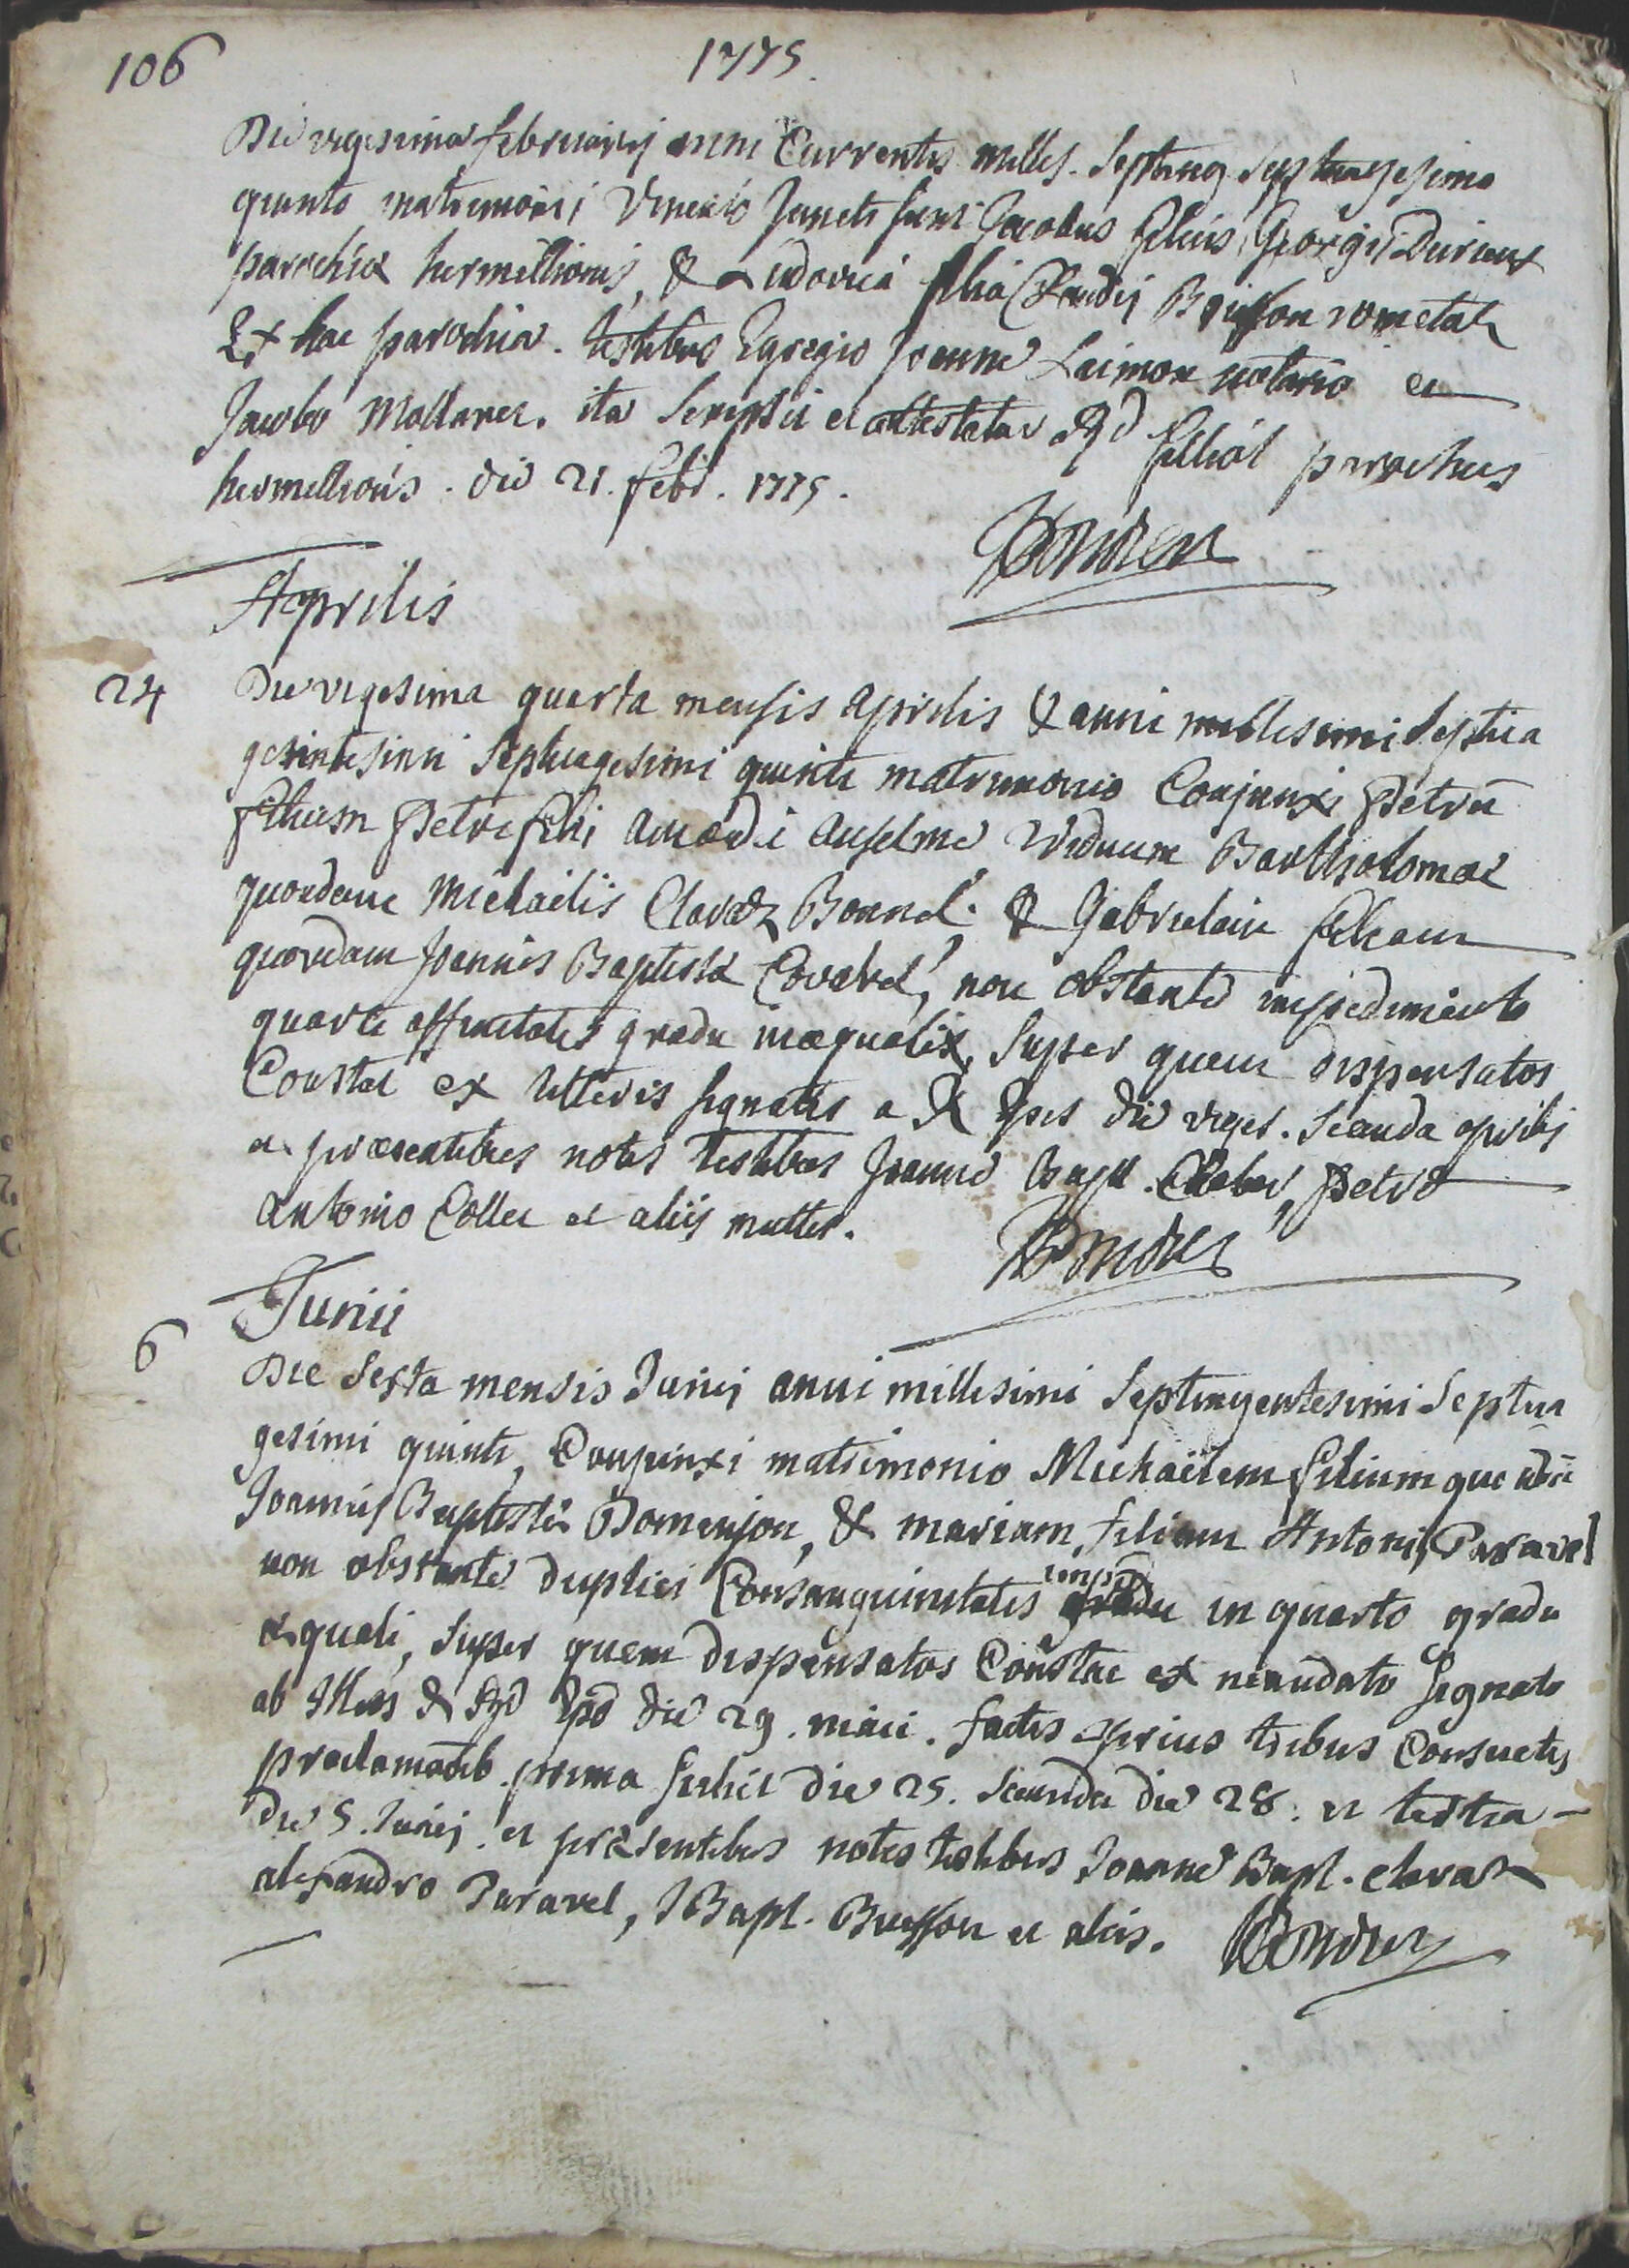 106
1775.
Die vigesima februarij anni Currentis milles. Septing. Septuagesimo
quinto matrimonii Vinculo Juncti sunt Jacobus filius Georgij Durieux
parochiæ hermillionis, & Ludovica filia Claudij Buisson
Ex hac parochia. testibus Egregio Joanne Laimon notario et
Jacobo Mollaret. ita Scripsit et attestatur Rd filliol parochus
hermillionis. die 21. febr. 1775.
Aprilis
24 Die vigesima quarta mensis aprilis & anni millesimi Septin
gesintesimi Septuagesimi quinti matrimonio Conjunxi Petrū
filium Petri filii amædei anselme viduum Bartholomæe
quondam Michaëlis Claraz Bonnel & Gabrielam filiam
quondam Joannis Baptistæ Covarel, non obstante impedimento
quarti affinitatis gradu inæqualis, Super quem dispensatos
Constat ex litteris signatis a R die viges. Secunda aprilis
et præsentibus notis testibus Joanne Bapt. Petro
antonio Collet et aliis multis.
Junii
6 Die Sexta mensis Junij anni millesimi Septingentesimi Septua
gesimi quinti, Conjunxi matrimonio Michaëlem filium quodā
Joannis Baptistæ Domenjon, & mariam filiam Antonij Paravel
non obstante duplici Consanguinitatis impō in quarto gradu
æquali, Super quem dispensatos Constat ex mandato Signato
ab Illus & Rd die 29. maii. factis prius tribus Consuetis
proclamatib. prima scilict die 25. Secunda die 28. et tertia
die 5. Junij. et præsentibus notis testibus Joanne Bapt. claraz
alexandro Paravel, J Bapt. Buisson et aliis.